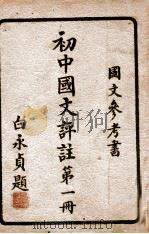 國文參考書
初中國文評註第一冊
白永貞題